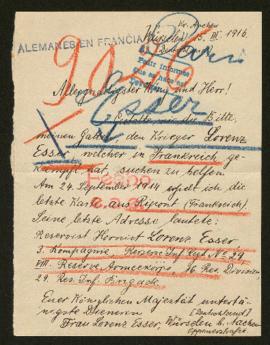 Kr. Aachen
Würselen, 15. III. 1916.
ALEMANES EN FRANCIA
Paris
90
Allergnädigster König und Herr!
Esser
Erlaube mir die Bitte,
meinen Gatten den Krieger Lorenz
Esser, welcher in Frankreich ge-
kämpft hat, suchen zu helfen.
Am 24. September 1914 erhielt ich die
letzte Karte aus Ripont (Frankreich)
Seine letzte Adresse lautete:
Reservist Hornist Lorenz Esser
3. Kompagnie Reserve Inf. Regt. N: 29
VIII. Reserve Armeekorps 16 Res. Division
29. Res. Inf. Brigade.
Euer Königlichen Majestät untertä-
nigste Dienerin
(Deutschland)
Frau Lorenz Esser, Würselen bei Aachen